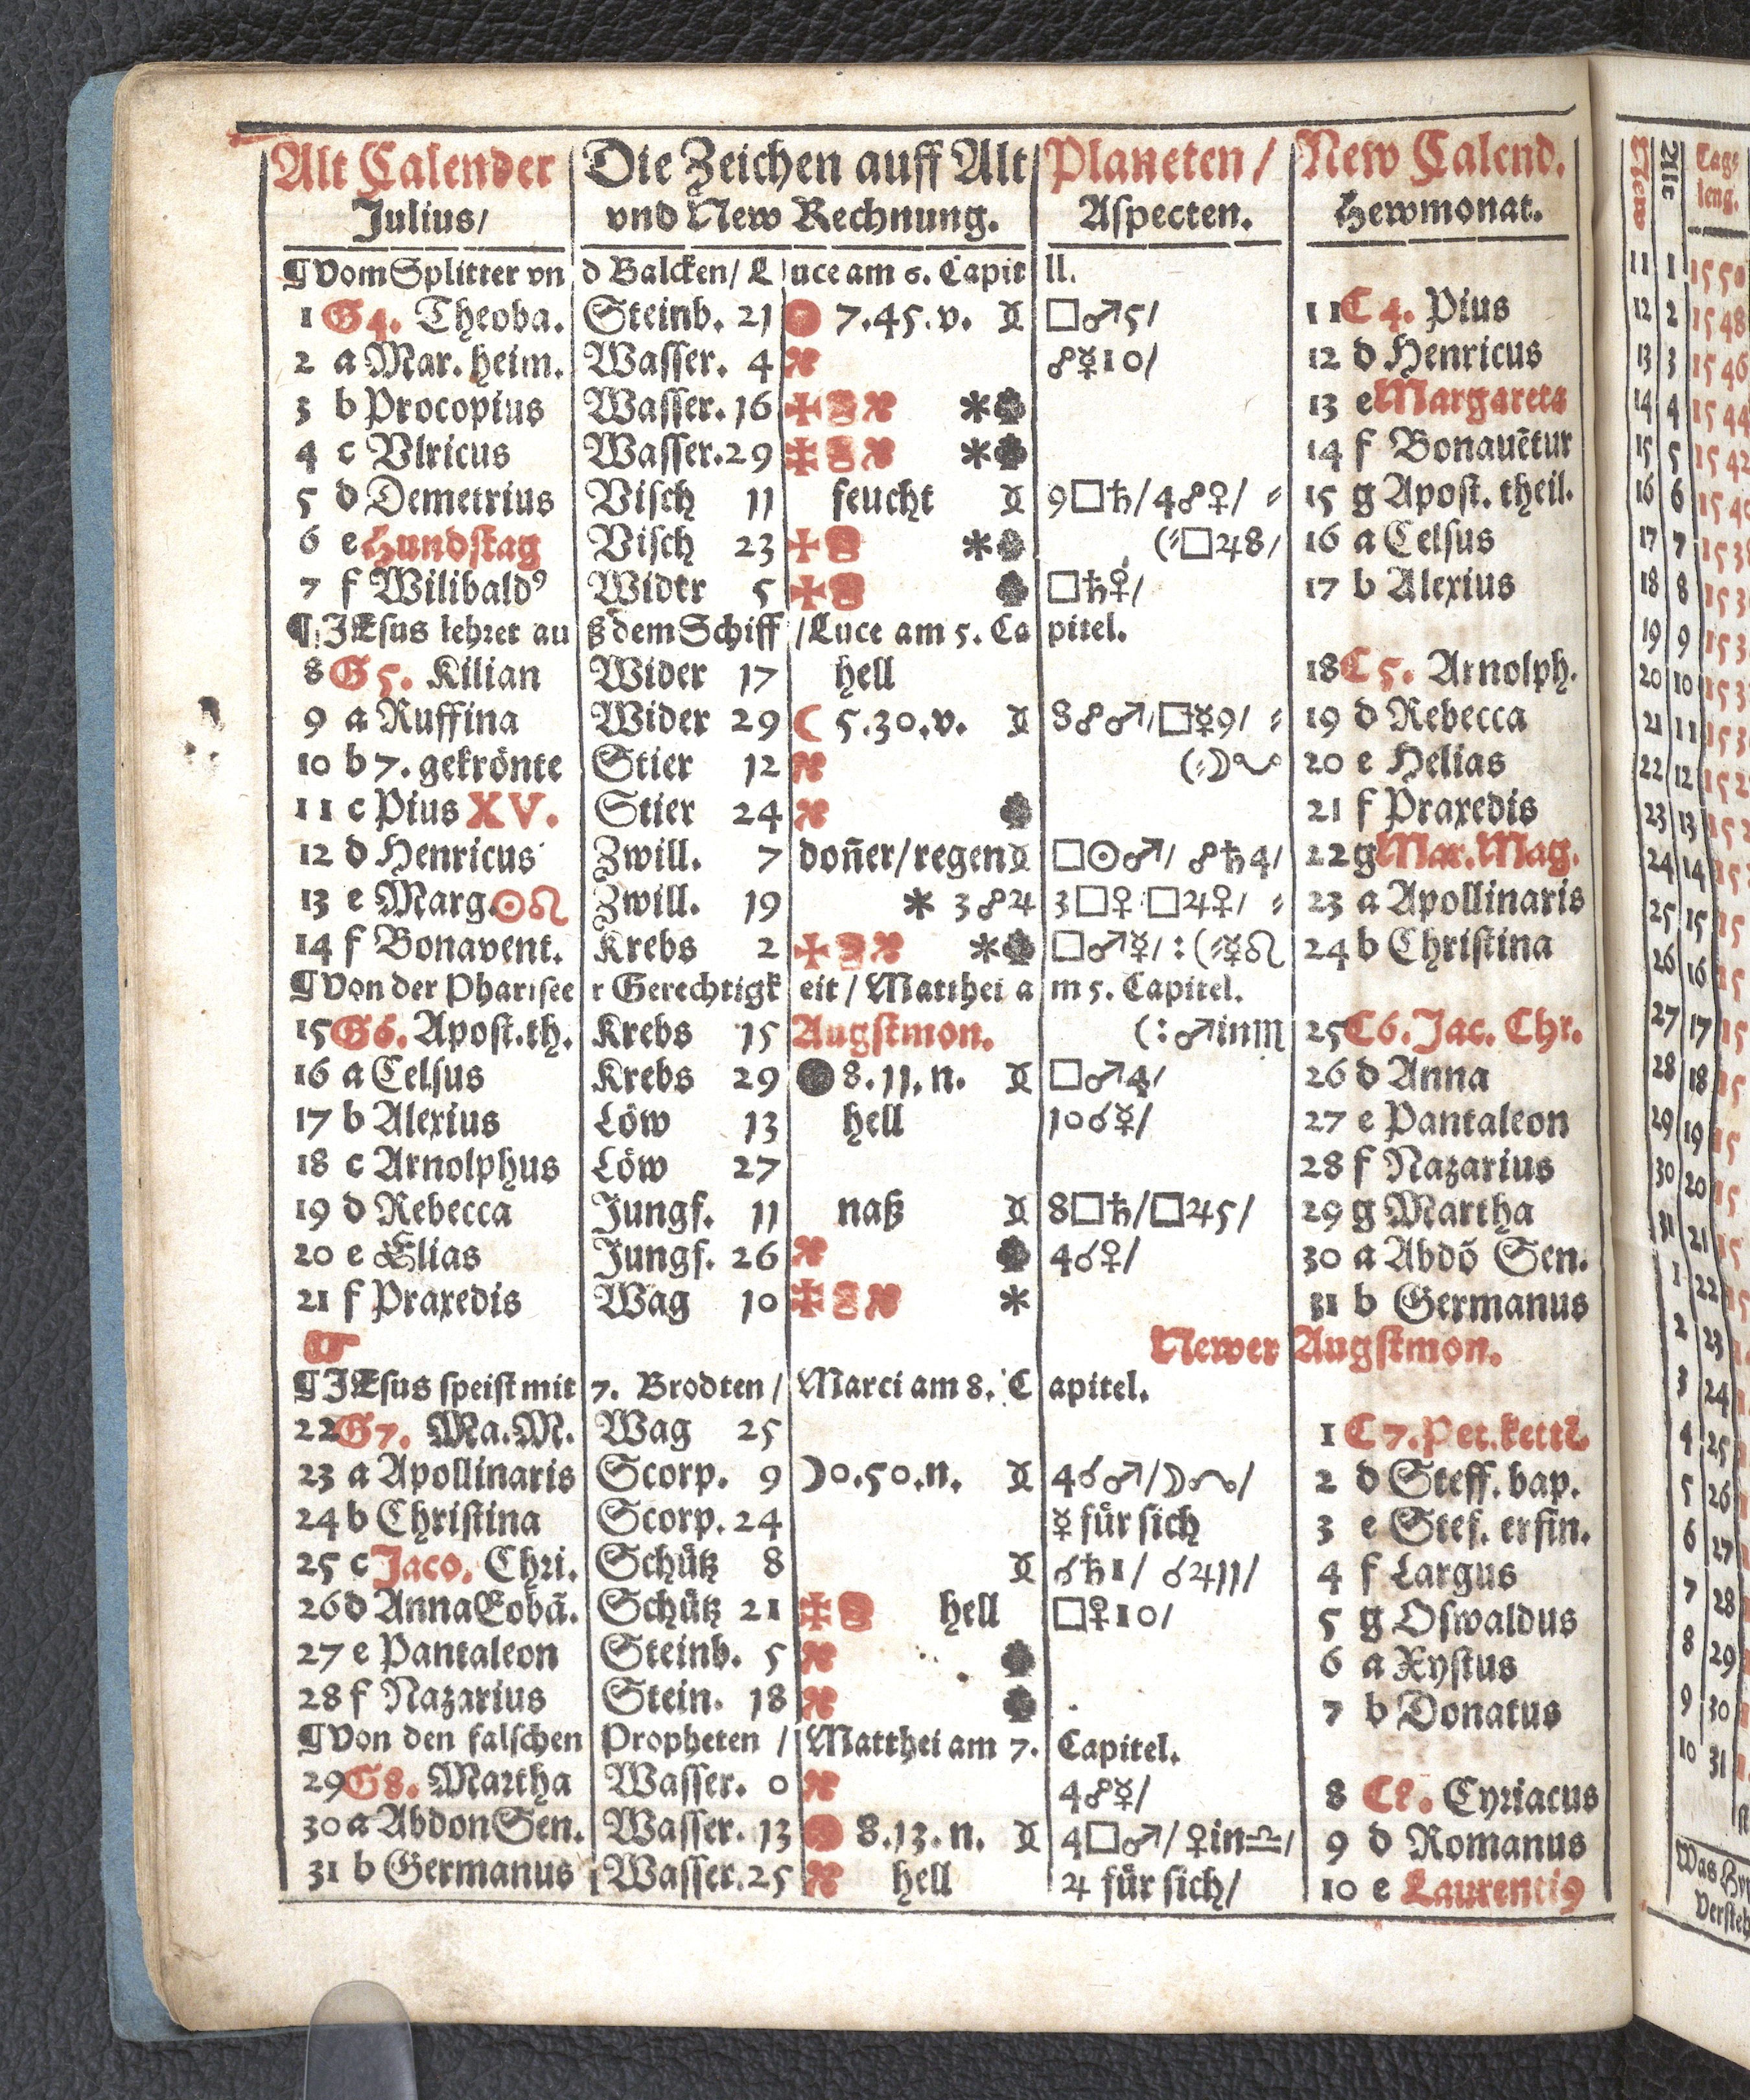 Alt Calender Die Zeichen auff Alt Planeten/ New Calend.
Julius/ vnd New Rechnung. Aspecten. Hewmonat.
¶Vom Splitter vnd Balcken/ Luce am 6. Capitll.
1 G4. Theoba. Steinb. 21 7.45.v. □♂5/ 11 C 4. Pius
2 a Mar. heim. Wasser. 4 ☍☿10/ 12 d Henricus
3 b Procopius Wasser. 16 * 13 e Margareta
4 c Vlricus Wasser. 29 * 14 f Bonauẽtur
5 d Demetrius Visch 11 feucht 9□♄/4☍♀/ 15 g Apost. theil.
6 e Hundstag Visch 23 * (□♃8/ 16 a Celsus
7 f Wilibaldꝰ Wider 5 □♄♀/ 17 b Alexius
¶JEsus lehret auß dem Schiff/Luce am 5. Capitel.
8 G 5. Kilian Wider 17 hell 18 C 5. Arnolph.
9 a Ruffina Wider 29 ☾ 5.30.v. 8☍♂/□☿9/ 19 d Rebecca
10 b 7. gekrönte Stier 12 20 e Helias
11 c Pius XV. Stier 24 21 f Praxedis
12 d Henricus Zwill. 7 doñer/regen □☉♂/ ☍♄4/ 22 g Mar. Mag.
13 e Marg. ☉♌ Zwill. 19 * 3☍♃ 3□♀ □♃♀/ 23 a Apollinaris
14 f Bonavent. Krebs 2 * □♂☿/:(☿♌ 24 b Christina
¶Von der Phariseer Gerechtigkeit/ Matthei am 5. Capitel.
15 G6. Apost.th. Krebs 15 Augstmon. (:♂in♏ 25 C6. Jac. Chr.
16 a Celsus Krebs 29 8.11.n. □♂4/ 26 d Anna
17 b Alexius Löw 13 hell 10☌☿/ 27 e Pantaleon
18 c Arnolphus Löw 27 28 f Nazarius
19 d Rebecca Jungf. 11 naß 8□♄/□♃5/ 29 g Martha
20 e Elias Jungf. 26 4☌♀/ 30 a Abdõ Sen.
21 f Praxedis Wag 10 * 31 b Germanus
☞ Newer Augstmon.
¶JEsus speist mit 7. Brodten/ Marci am 8. Capitel.
22 G7. Ma.M. Wag 25 1 C 7. Pet. kettẽ.
23 a Apollinaris Scorp. 9 ☽0.50.n. 4☌♂/☽/ 2 d Steff. bap.
24 b Christina Scorp. 24 ☿ für sich 3 e Stef. erfin.
25 c Jaco. Chri. Schütz 8 ☌♄1/ ☌♃11/ 4 f Largus
26 d Anna Eobã. Schütz 21 hell □♀10/ 5 g Oswaldus
27 e Pantaleon Steinb. 5 6 a Xystus
28 f Nazarius Stein. 18 7 b Donatus
¶Von den falschen Propheten/ Matthei am 7. Capitel.
29 G8. Martha Wasser. 0 4☍☿/ 8 C8. Cyriacus
30 a Abdon Sen. Wasser. 13 8.13.n. 4□♂/♀in♎/ 9 d Romanus
31 b Germanus Wasser. 25 hell ♃ für sich/ 10 e Laurentiꝰ
New Alt Tags leng.
11 1 15 50
12 2 15 48
13 3 15 46
14 4 15 44
15 5 15 42
16 6
17 7
18 8
19 9
20 10
21 11
22 12
23 13
24 14
25 15
26 16
27 17
28 18
29 19
30 20
31 21
1 22
2 23
3 24
4 25
5 26
6 27
7 28
8 29
9 30
10 31